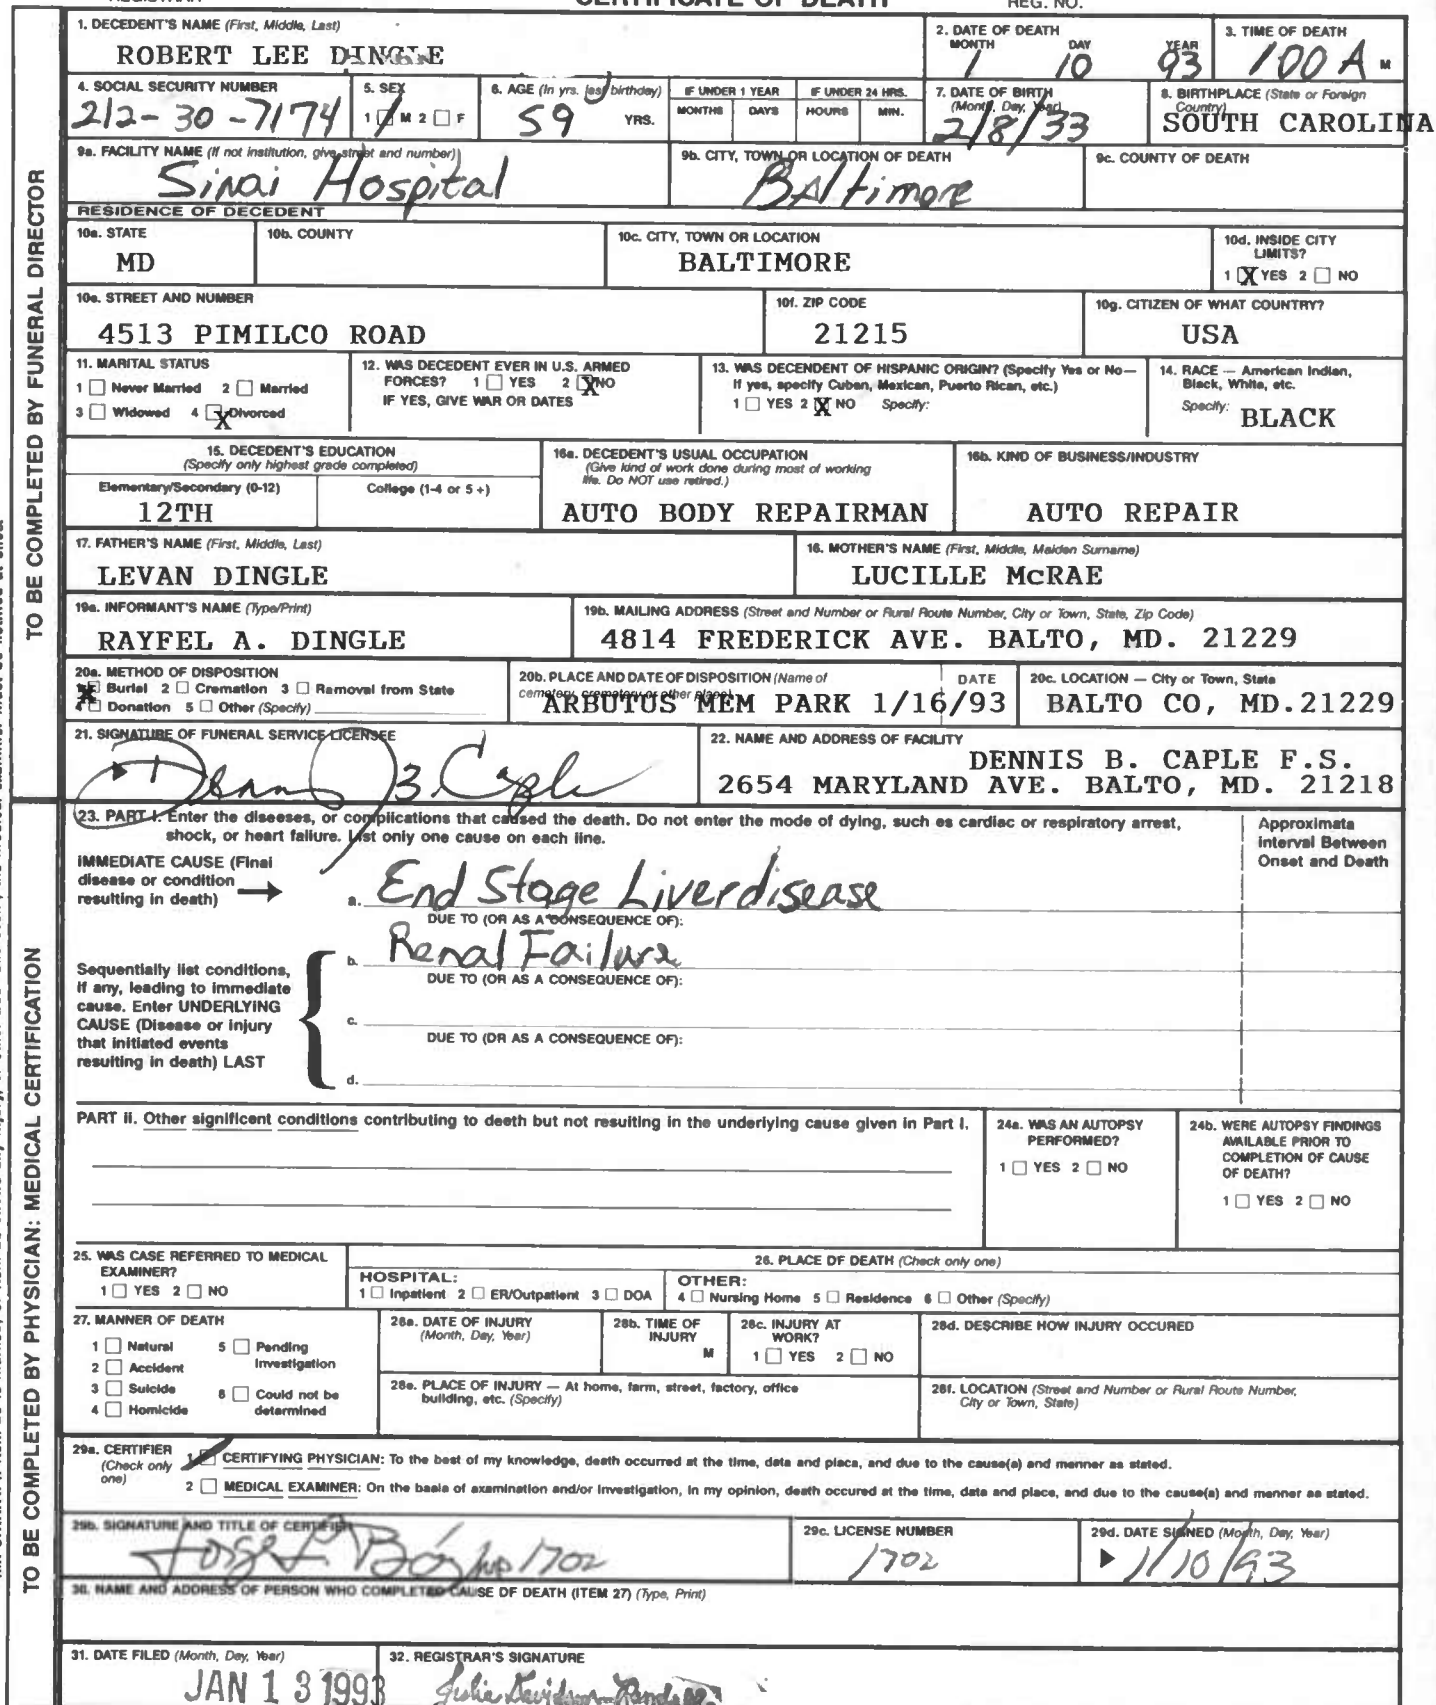 CERTIFICATE OF DEATH
REG. NO.
1. DECEDENT'S NAME (First, Middle, Last)
ROBERT LEE DINGLE
2. DATE OF DEATH
MONTH DAY YEAR
1 10 93
3. TIME OF DEATH
100 A M
4. SOCIAL SECURITY NUMBER
212-30-7174
5. SEX
1 ☑ M 2 ☐ F
6. AGE (In yrs. last birthday)
59 YRS.
IF UNDER 1 YEAR
MONTHS DAYS
IF UNDER 24 HRS.
HOURS MIN.
7. DATE OF BIRTH
(Month, Day, Year)
2/8/33
8. BIRTHPLACE (State or Foreign
Country)
SOUTH CAROLINA
9a. FACILITY NAME (If not institution, give street and number)
Sinai Hospital
9b. CITY, TOWN OR LOCATION OF DEATH
BAltimore
9c. COUNTY OF DEATH
RESIDENCE OF DECEDENT
10a. STATE
MD
10b. COUNTY
10c. CITY, TOWN OR LOCATION
BALTIMORE
10d. INSIDE CITY
LIMITS?
1 ☒ YES 2 ☐ NO
10e. STREET AND NUMBER
4513 PIMILCO ROAD
10f. ZIP CODE
21215
10g. CITIZEN OF WHAT COUNTRY?
USA
11. MARITAL STATUS
1 ☐ Never Married 2 ☐ Married
3 ☐ Widowed 4 ☒ Divorced
12. WAS DECEDENT EVER IN U.S. ARMED
FORCES? 1 ☐ YES 2 ☒ NO
IF YES, GIVE WAR OR DATES
13. WAS DECENDENT OF HISPANIC ORIGIN? (Specify Yes or No—
If yes, specify Cuban, Mexican, Puerto Rican, etc.)
1 ☐ YES 2 ☒ NO Specify:
14. RACE — American Indian,
Black, White, etc.
Specify: BLACK
15. DECEDENT'S EDUCATION
(Specify only highest grade completed)
Elementary/Secondary (0-12) College (1-4 or 5 +)
12TH
16a. DECEDENT'S USUAL OCCUPATION
(Give kind of work done during most of working
life. Do NOT use retired.)
AUTO BODY REPAIRMAN
16b. KIND OF BUSINESS/INDUSTRY
AUTO REPAIR
17. FATHER'S NAME (First, Middle, Last)
LEVAN DINGLE
16. MOTHER'S NAME (First, Middle, Maiden Surname)
LUCILLE McRAE
19a. INFORMANT'S NAME (Type/Print)
RAYFEL A. DINGLE
19b. MAILING ADDRESS (Street and Number or Rural Route Number, City or Town, State, Zip Code)
4814 FREDERICK AVE. BALTO, MD. 21229
20a. METHOD OF DISPOSITION
☒ Burial 2 ☐ Cremation 3 ☐ Removal from State
4 ☐ Donation 5 ☐ Other (Specify)
20b. PLACE AND DATE OF DISPOSITION (Name of
cemetery, crematory or other place) DATE
ARBUTUS MEM PARK 1/16/93
20c. LOCATION — City or Town, State
BALTO CO, MD.21229
21. SIGNATURE OF FUNERAL SERVICE LICENSEE
Dennis B. Caple
22. NAME AND ADDRESS OF FACILITY
DENNIS B. CAPLE F.S.
2654 MARYLAND AVE. BALTO, MD. 21218
23. PART I. Enter the diseases, or complications that caused the death. Do not enter the mode of dying, such as cardiac or respiratory arrest,
shock, or heart failure. List only one cause on each line.
Approximate
Interval Between
Onset and Death
IMMEDIATE CAUSE (Final
disease or condition
resulting in death)
a. End Stage Liver disease
DUE TO (OR AS A CONSEQUENCE OF):
b. Renal Failure
DUE TO (OR AS A CONSEQUENCE OF):
Sequentially list conditions,
if any, leading to immediate
cause. Enter UNDERLYING
CAUSE (Disease or injury
that initiated events
resulting in death) LAST
c.
DUE TO (OR AS A CONSEQUENCE OF):
d.
PART II. Other significent conditions contributing to deeth but not resulting in the underlying cause given in Part I.
24a. WAS AN AUTOPSY
PERFORMED?
1 ☐ YES 2 ☐ NO
24b. WERE AUTOPSY FINDINGS
AVAILABLE PRIOR TO
COMPLETION OF CAUSE
OF DEATH?
1 ☐ YES 2 ☐ NO
25. WAS CASE REFERRED TO MEDICAL
EXAMINER?
1 ☐ YES 2 ☐ NO
26. PLACE OF DEATH (Check only one)
HOSPITAL:
1 ☐ Inpatient 2 ☐ ER/Outpatient 3 ☐ DOA
OTHER:
4 ☐ Nursing Home 5 ☐ Residence 6 ☐ Other (Specify)
27. MANNER OF DEATH
1 ☐ Natural 5 ☐ Pending
Investigation
2 ☐ Accident
3 ☐ Suicide 6 ☐ Could not be
determined
4 ☐ Homicide
28a. DATE OF INJURY
(Month, Day, Year)
28b. TIME OF
INJURY
M
28c. INJURY AT
WORK?
1 ☐ YES 2 ☐ NO
28d. DESCRIBE HOW INJURY OCCURED
28e. PLACE OF INJURY — At home, farm, street, factory, office
building, etc. (Specify)
28f. LOCATION (Street and Number or Rural Route Number,
City or Town, State)
29a. CERTIFIER
(Check only
one)
1 ☑ CERTIFYING PHYSICIAN: To the best of my knowledge, death occurred at the time, date and place, and due to the cause(s) and manner as stated.
2 ☐ MEDICAL EXAMINER: On the basis of examination and/or investigation, in my opinion, death occured at the time, date and place, and due to the cause(s) and manner as stated.
29b. SIGNATURE AND TITLE OF CERTIFIER
1702
29c. LICENSE NUMBER
1702
29d. DATE SIGNED (Month, Day, Year)
1/10/93
30. NAME AND ADDRESS OF PERSON WHO COMPLETED CAUSE OF DEATH (ITEM 27) (Type, Print)
31. DATE FILED (Month, Day, Year)
JAN 13 1993
32. REGISTRAR'S SIGNATURE
TO BE COMPLETED BY FUNERAL DIRECTOR
TO BE COMPLETED BY PHYSICIAN: MEDICAL CERTIFICATION